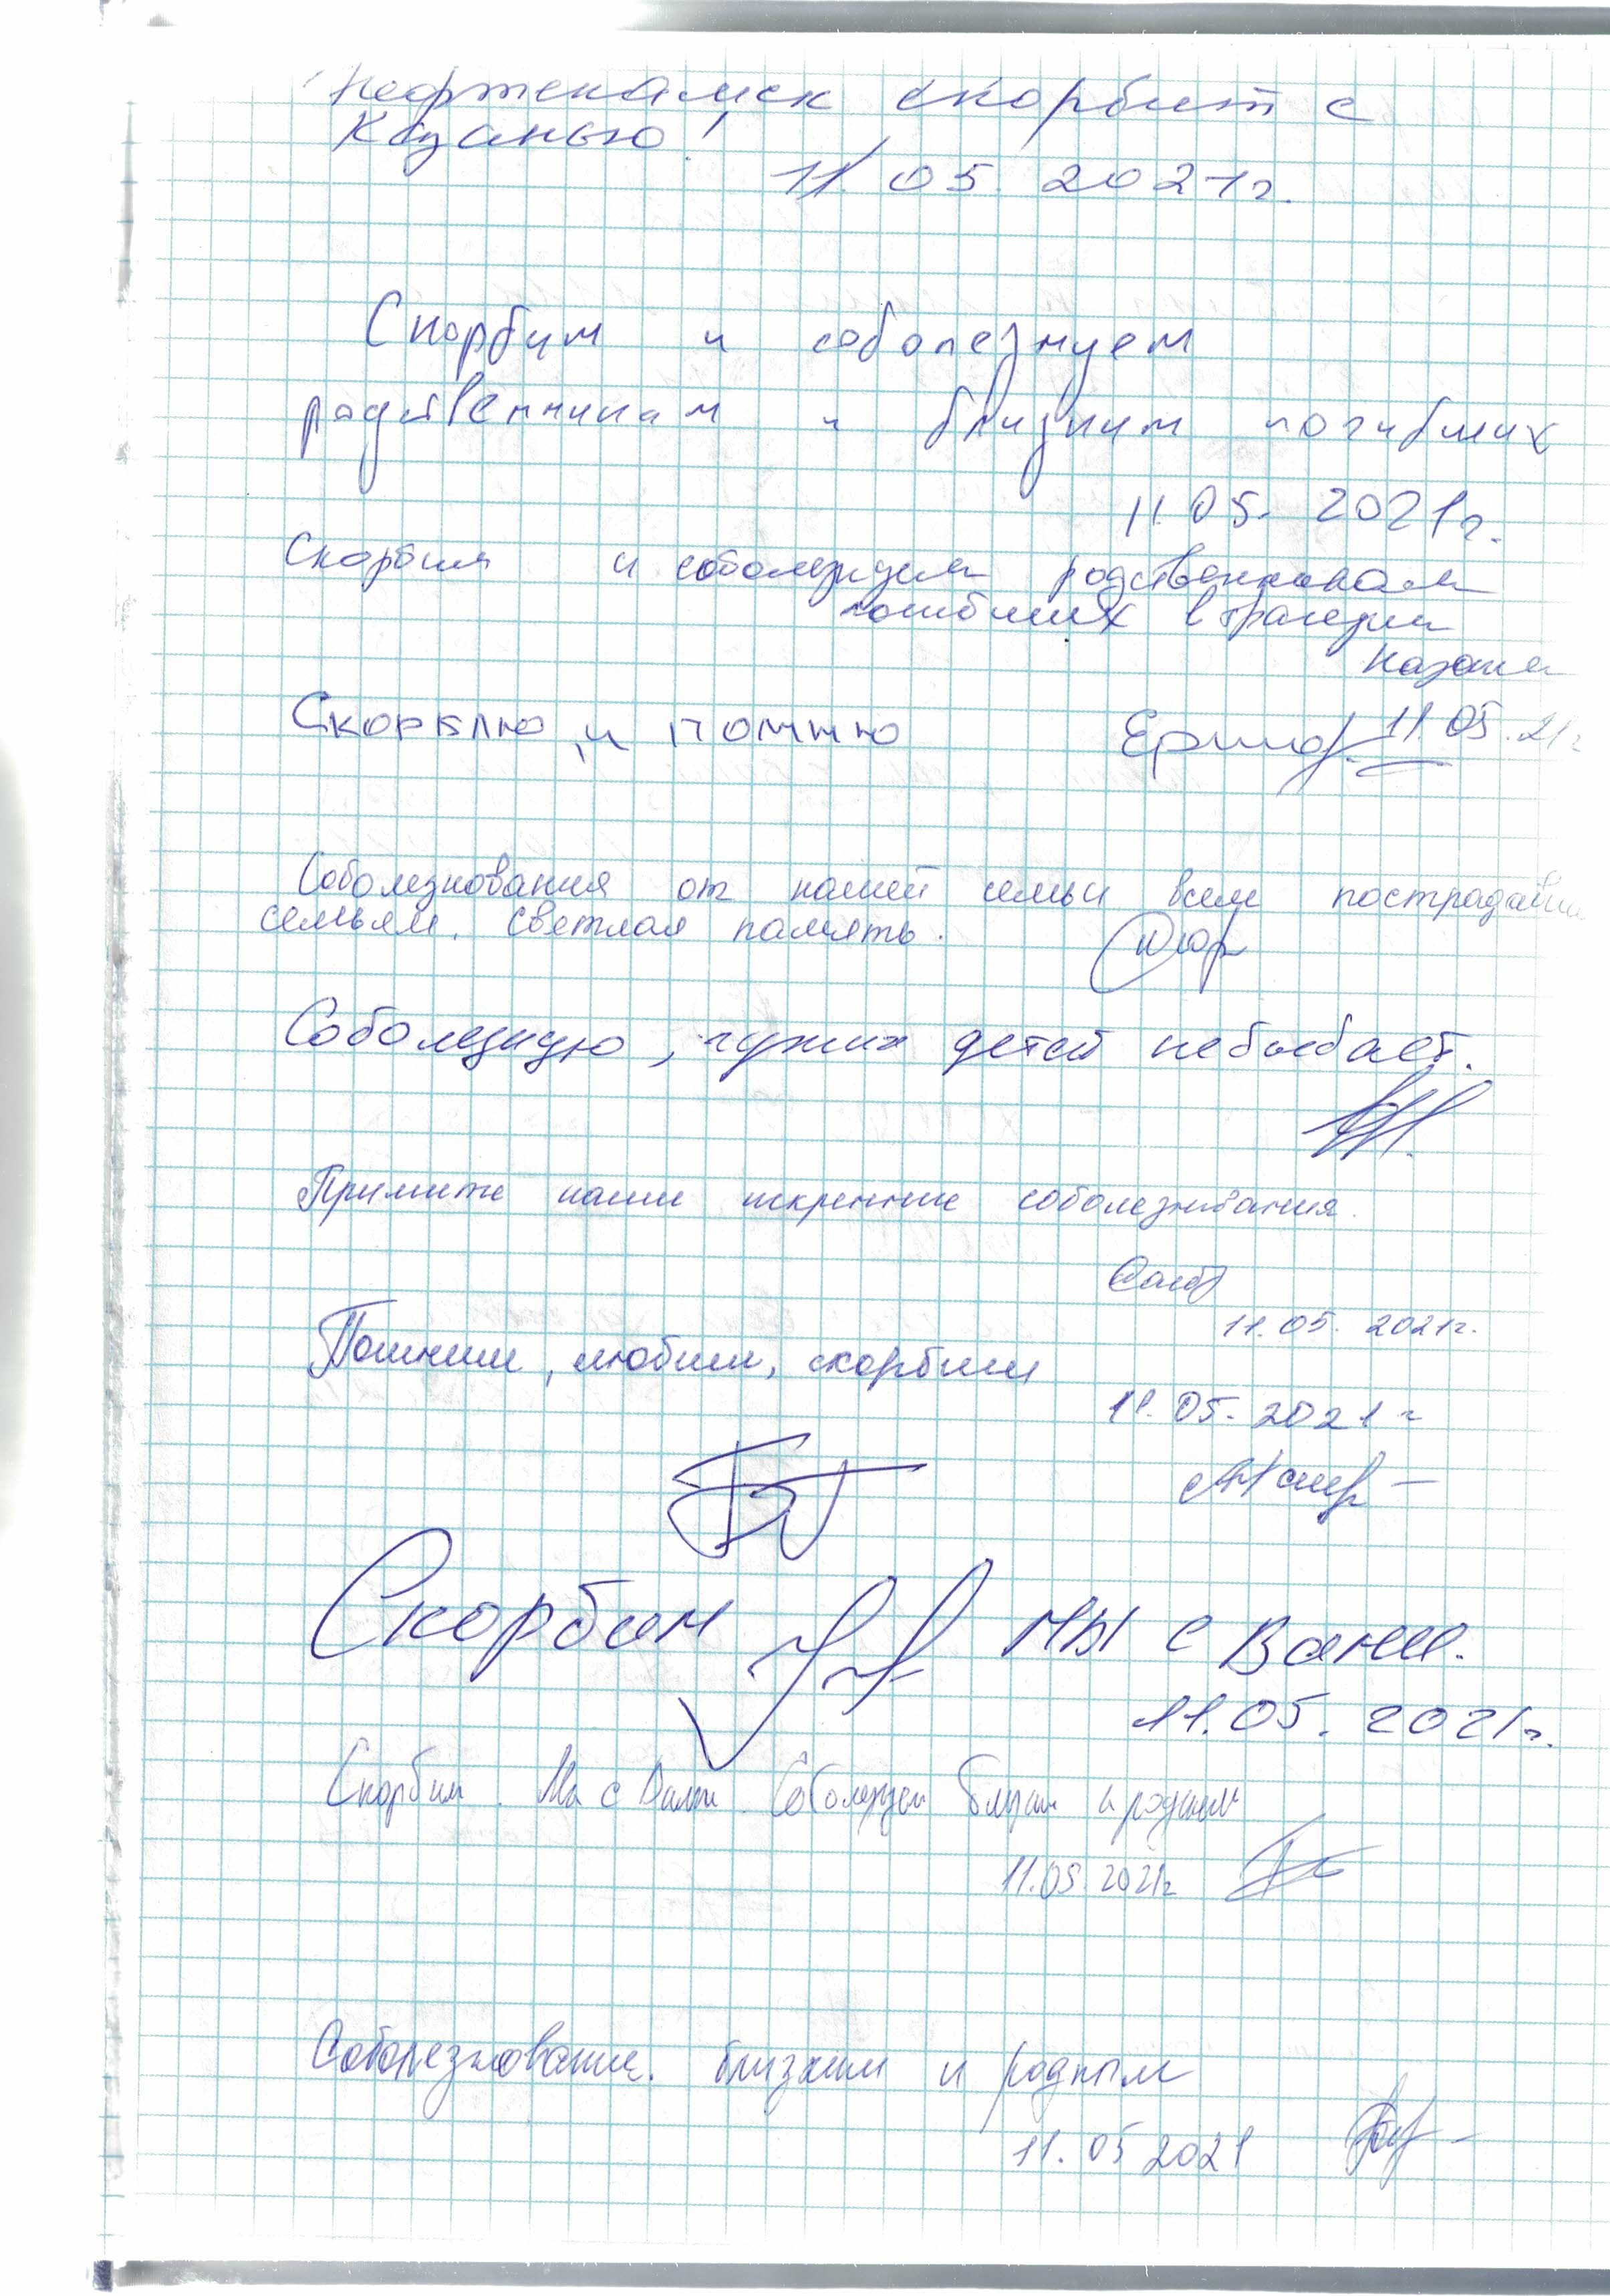 Нефтекамск скорбит с
Казанью!
11.05.2021г.
Скорбим и соболезнуем
родственникам и близким погибших
11.05.2021г.
Скорбим и соболезнуем родственникам
погибших в трагедии
Казани
Скорблю и помню 11.05.21г
Соболезнования от нашей семьи всем пострадавшим
семьям. Светлая память.
Соболезную, чужих детей небывает.
Примите наши искренние соболезнования.
11.05.2021г.
Помним, любим, скорбим
11.05.2021г
Скорбим мы с Вами.
11.05.2021г.
Скорбим. Мы с Вами. Соболезуем близким и родным
11.05.2021г
Соболезнование. близким и родным
11.05 2021